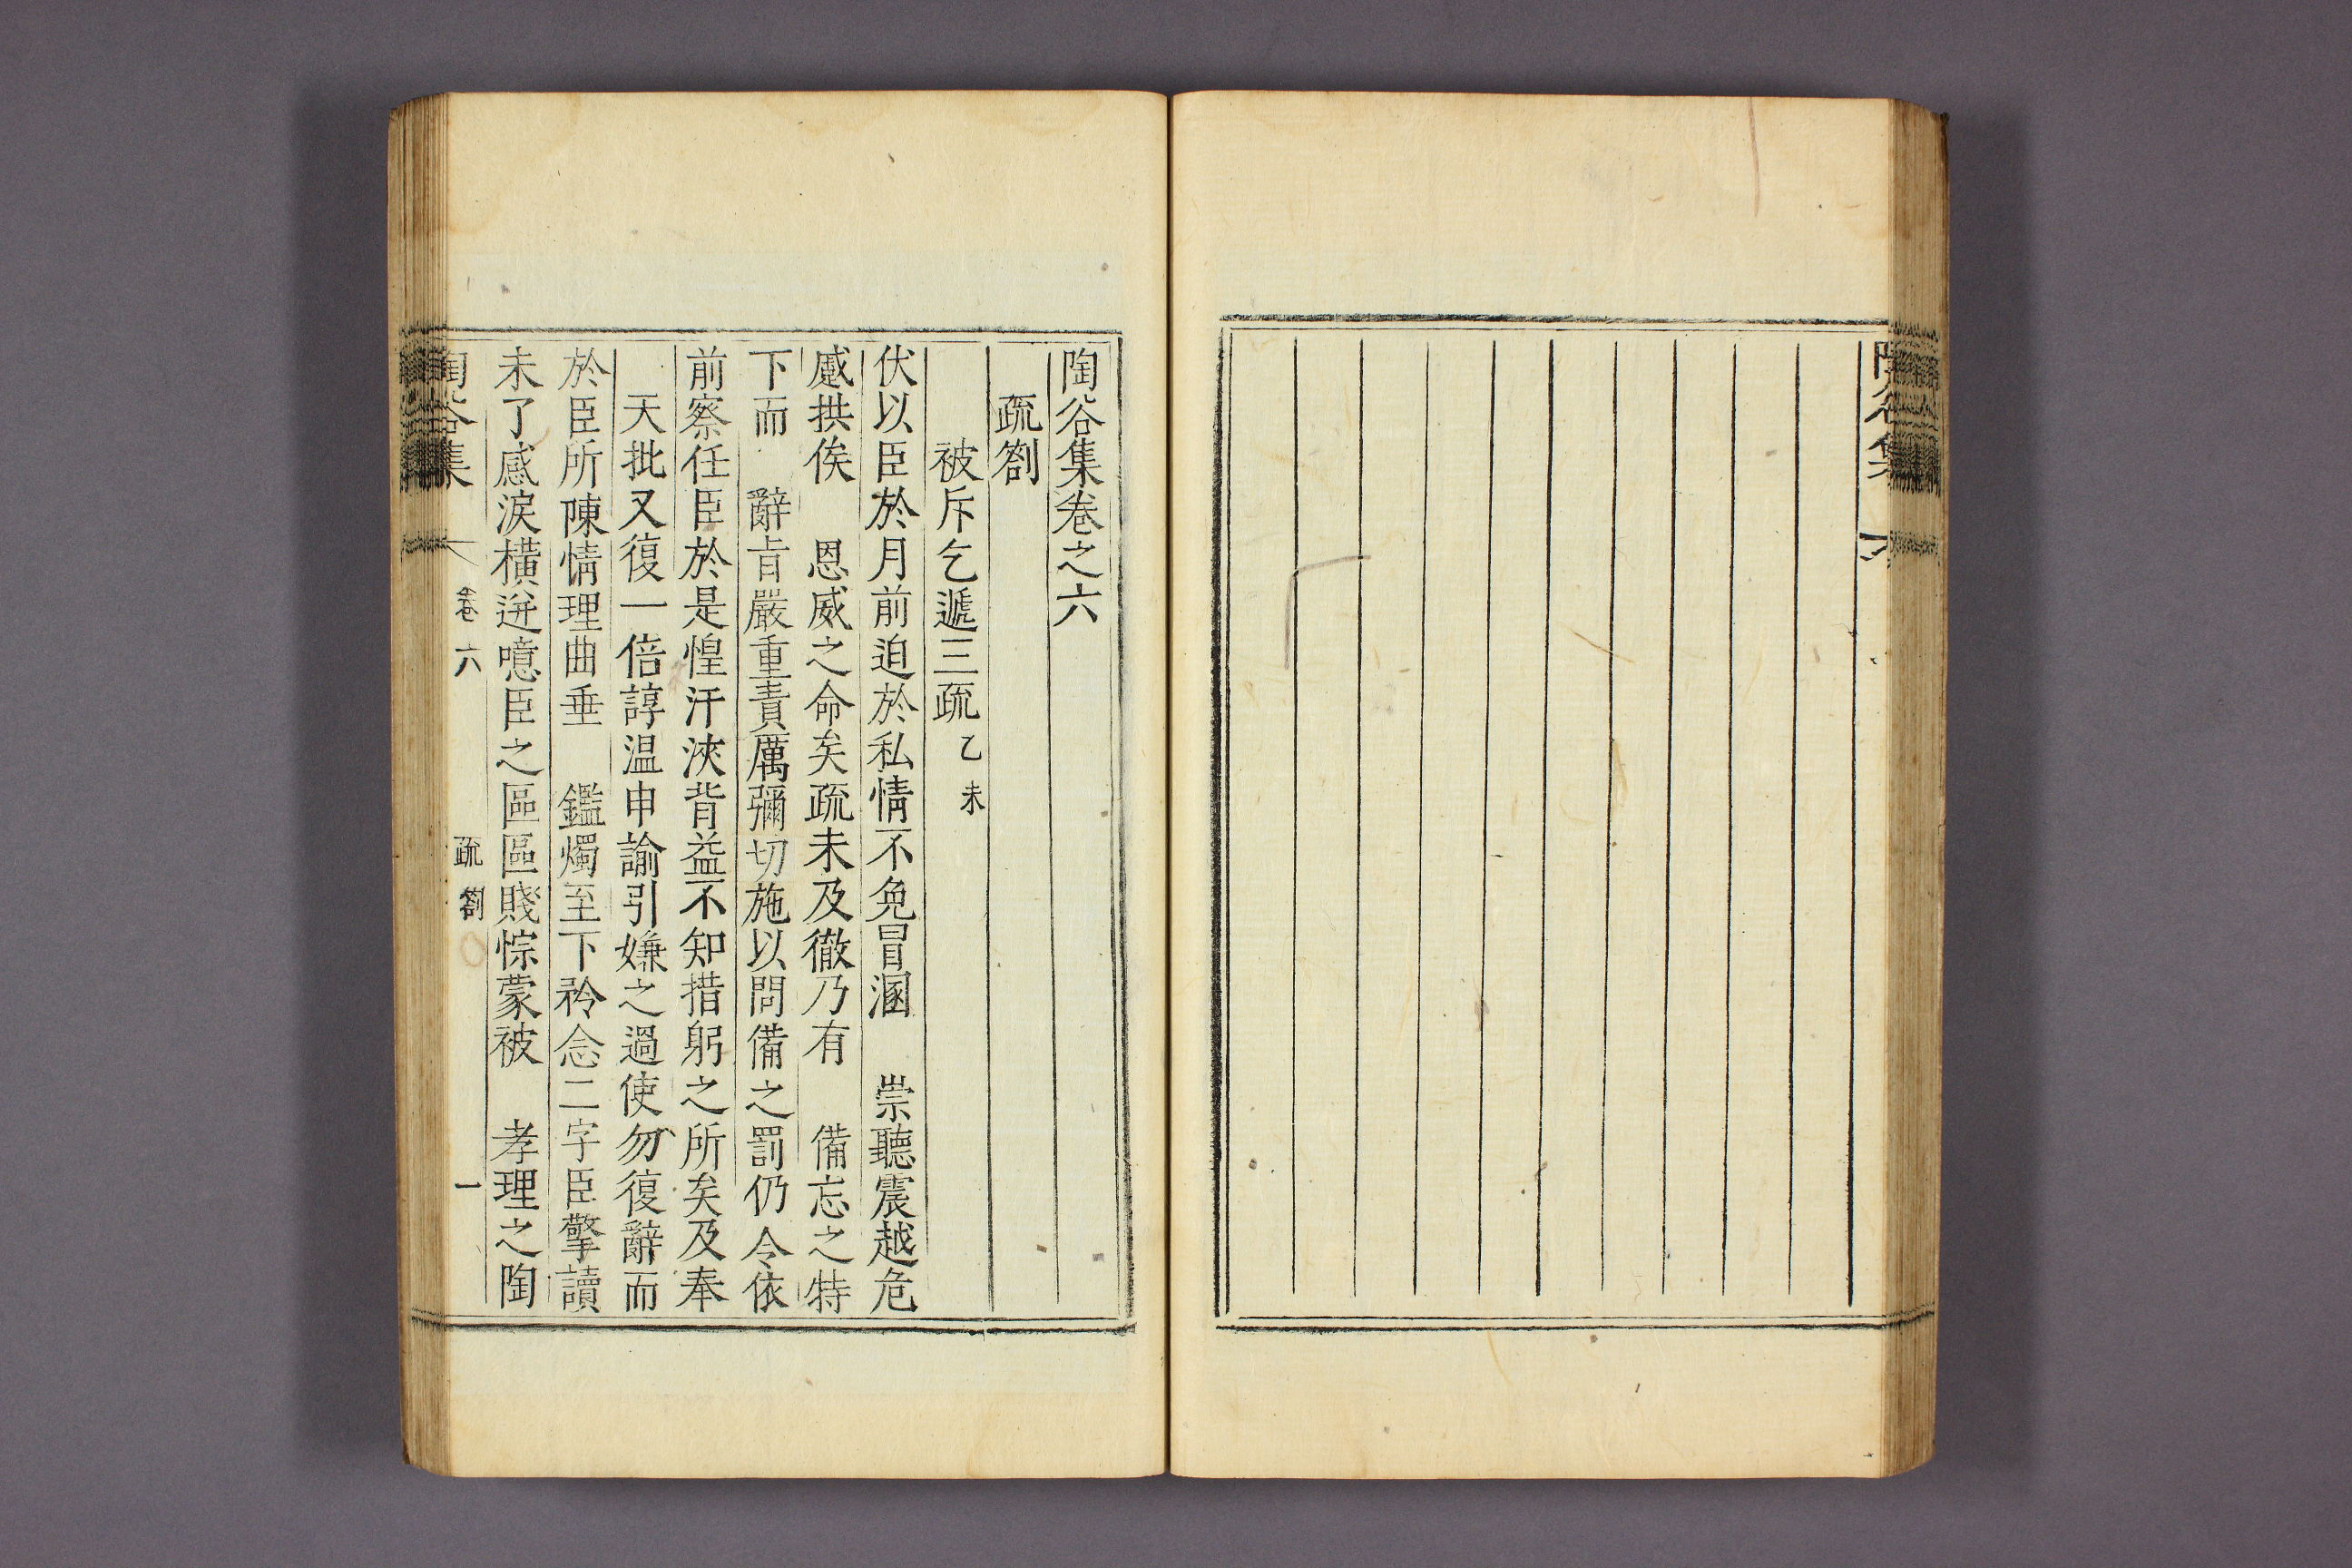 陶谷集卷之六
疏劄
被斥乞遞三疏 乙未
伏以臣於月前迫於私情不免冒溷 崇聽震越危
蹙拱俟 恩威之命矣疏未及徹乃有 備忘之特
下而 辭旨嚴重責厲彌切施以問備之罰仍令依
前察任臣於是惶汗浹背益不知措躬之所矣及奉
天批又復一倍諄温申諭引嫌之過使勿復辭而
於臣所陳情理曲垂 鑑燭至下矜念二字臣擎讀
未了感淚橫迸噫臣之區區賤悰蒙被 孝理之陶
陶谷集 卷六 疏劄 一